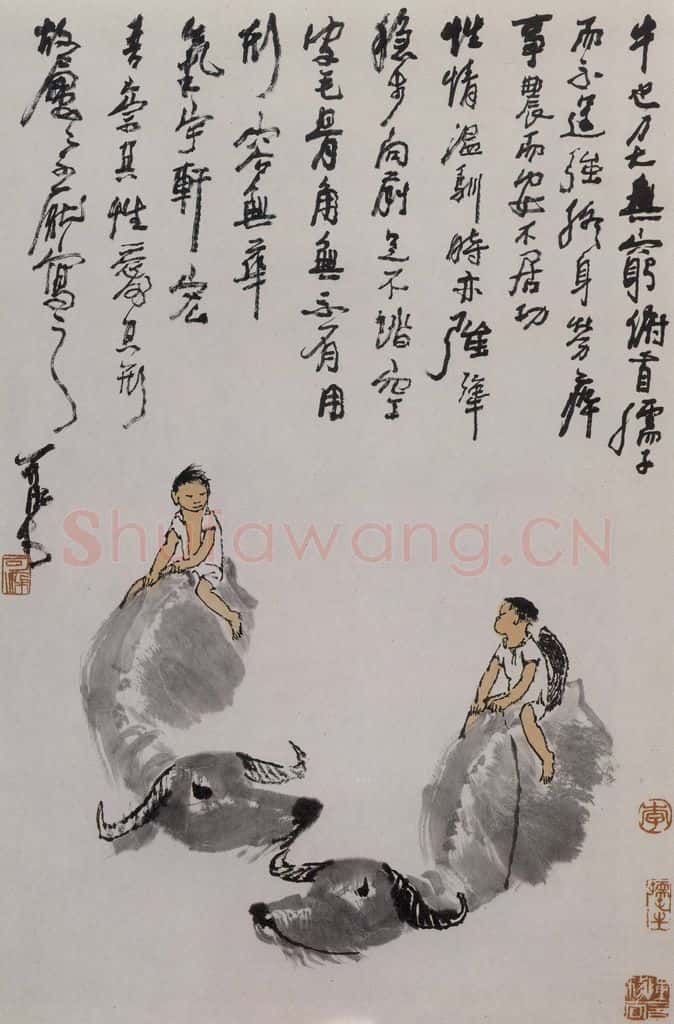 牛也力大無窮俯首孺子
而不逞強終身勞瘁
事農而安不居功
性情溫馴時亦強犟
穩步向前足不踏空
皮毛骨角無不有用
形容無華
氣宇軒宏
吾崇其性愛其形
故屢屢不厭寫之
可染
可染
李
Shufawang.CN